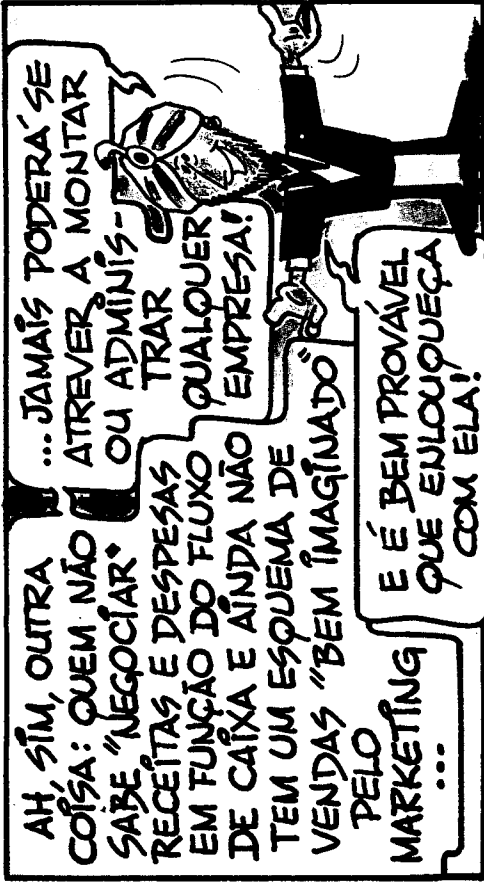 AH, SIM, OUTRA
COISA: QUEM NÃO
SABE "NEGOCIAR"
RECEITAS E DESPESAS
EM FUNÇÃO DO FLUXO
DE CAIXA E AINDA NÃO
TEM UM ESQUEMA DE
VENDAS "BEM IMAGINADO"
PELO
MARKETING
...
...JAMAIS PODERÁ SE
ATREVER A MONTAR
OU ADMINIS-
TRAR
QUALQUER
EMPRESA!
E É BEM PROVÁVEL
QUE ENLOUQUEÇA
COM ELA!